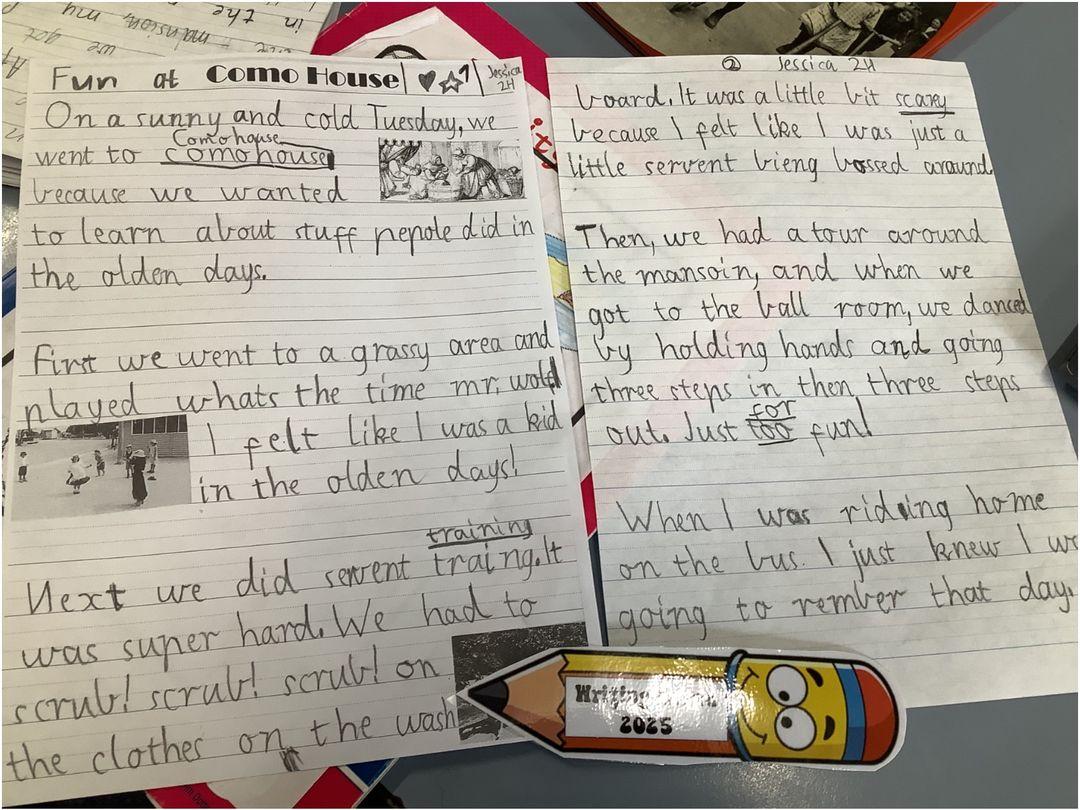 Fun at Como House
Jessica
2H
On a sunny and cold Tuesday, we
Comohouse
went to comohouse
because we wanted
to learn about stuff pepole did in
the olden days.
First we went to a grassy area and
played whats the time mr. wolf
I felt like I was a kid
in the olden days!
training
Next we did servent traing. It
was super hard. We had to
scrub! scrub! scrub! on
the clothes on the wash
② Jessica 2H
board. It was a little bit scary
because I felt like I was just a
little servent bieng bossed around
Then, we had a tour around
the mansoin, and when we
got to the ball room, we danced
by holding hands and going
three steps in then three steps
for
out. Just too fun!
When I was riding home
on the bus. I just knew I
going to rember that day.
Writing
2025